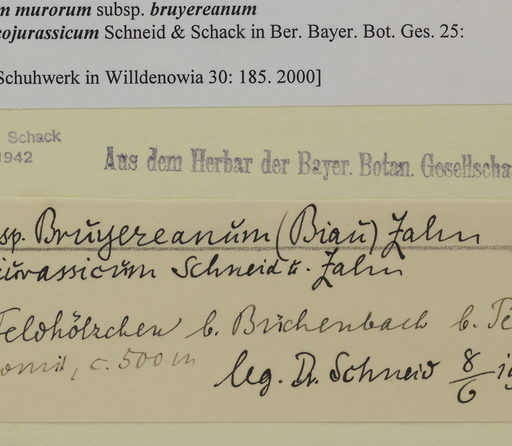 m murorum subsp. bruyereanum
ojurassicum Schneid & Schack in Ber. Bayer. Bot. Ges. 25:
Schuhwerk in Willdenowia 30: 185. 2000]
Schack
1942
Aus dem Herbar der Bayer. Botan. Gesellscha
sp. Bruyereanum (Biau) Zahn
jurassicum Schneid &. Zahn
Feldhölzchen b. Buchenbach b.
c. 500 m
leg. Dr. Schneid 8/6